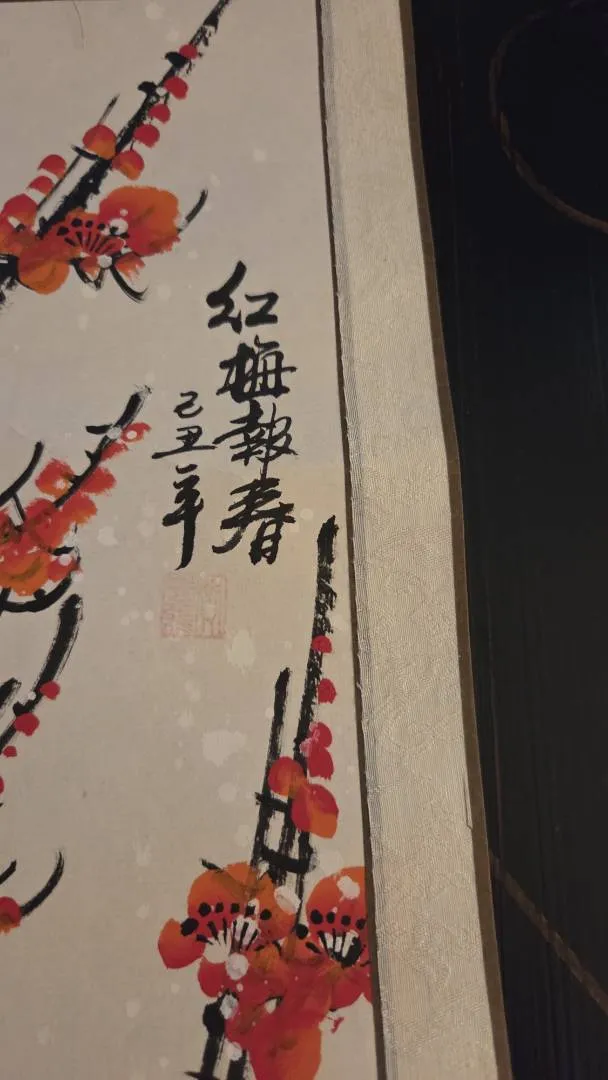 红梅報春
己丑辛